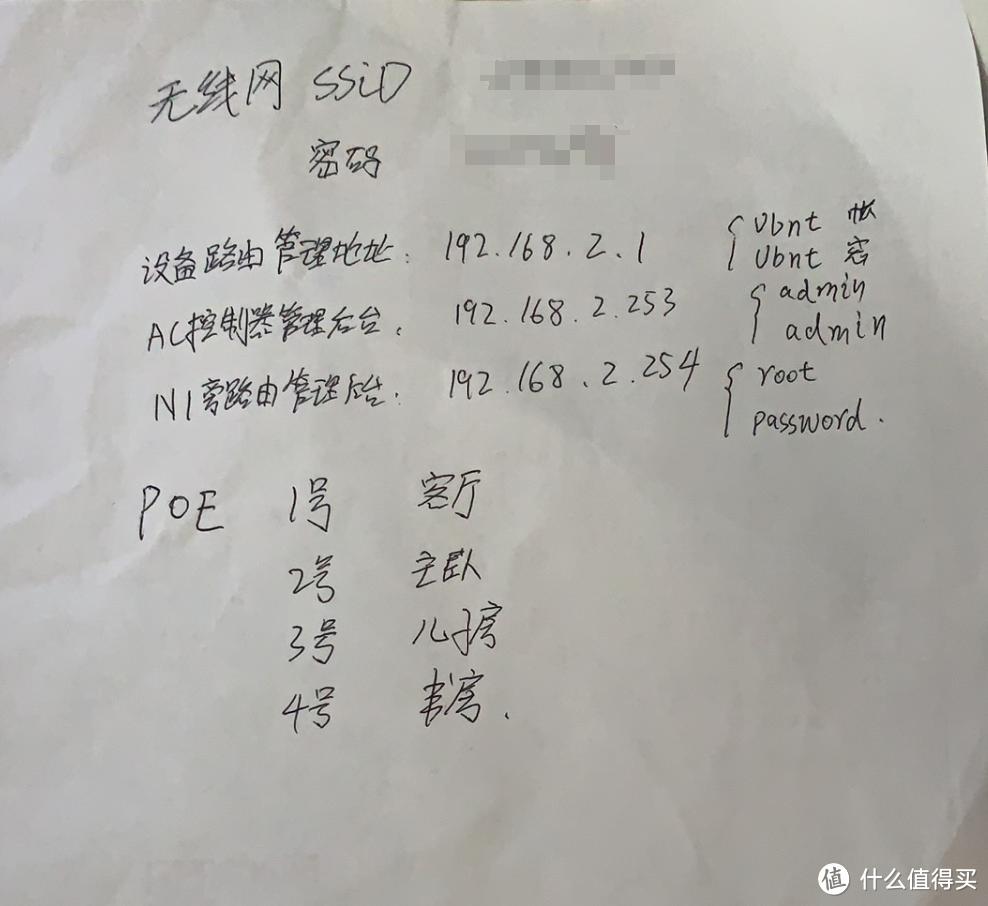 无线网 SSiD
密码
设备路由管理地址: 192.168.2.1 { Ubnt 帐
Ubnt 密
AC控制器管理后台. 192.168.2.253 { admin
admin
N1旁路由管理后台. 192.168.2.254 { root
password.
POE 1号 客厅
2号 主卧
3号 儿子房
4号 书房.
值 什么值得买